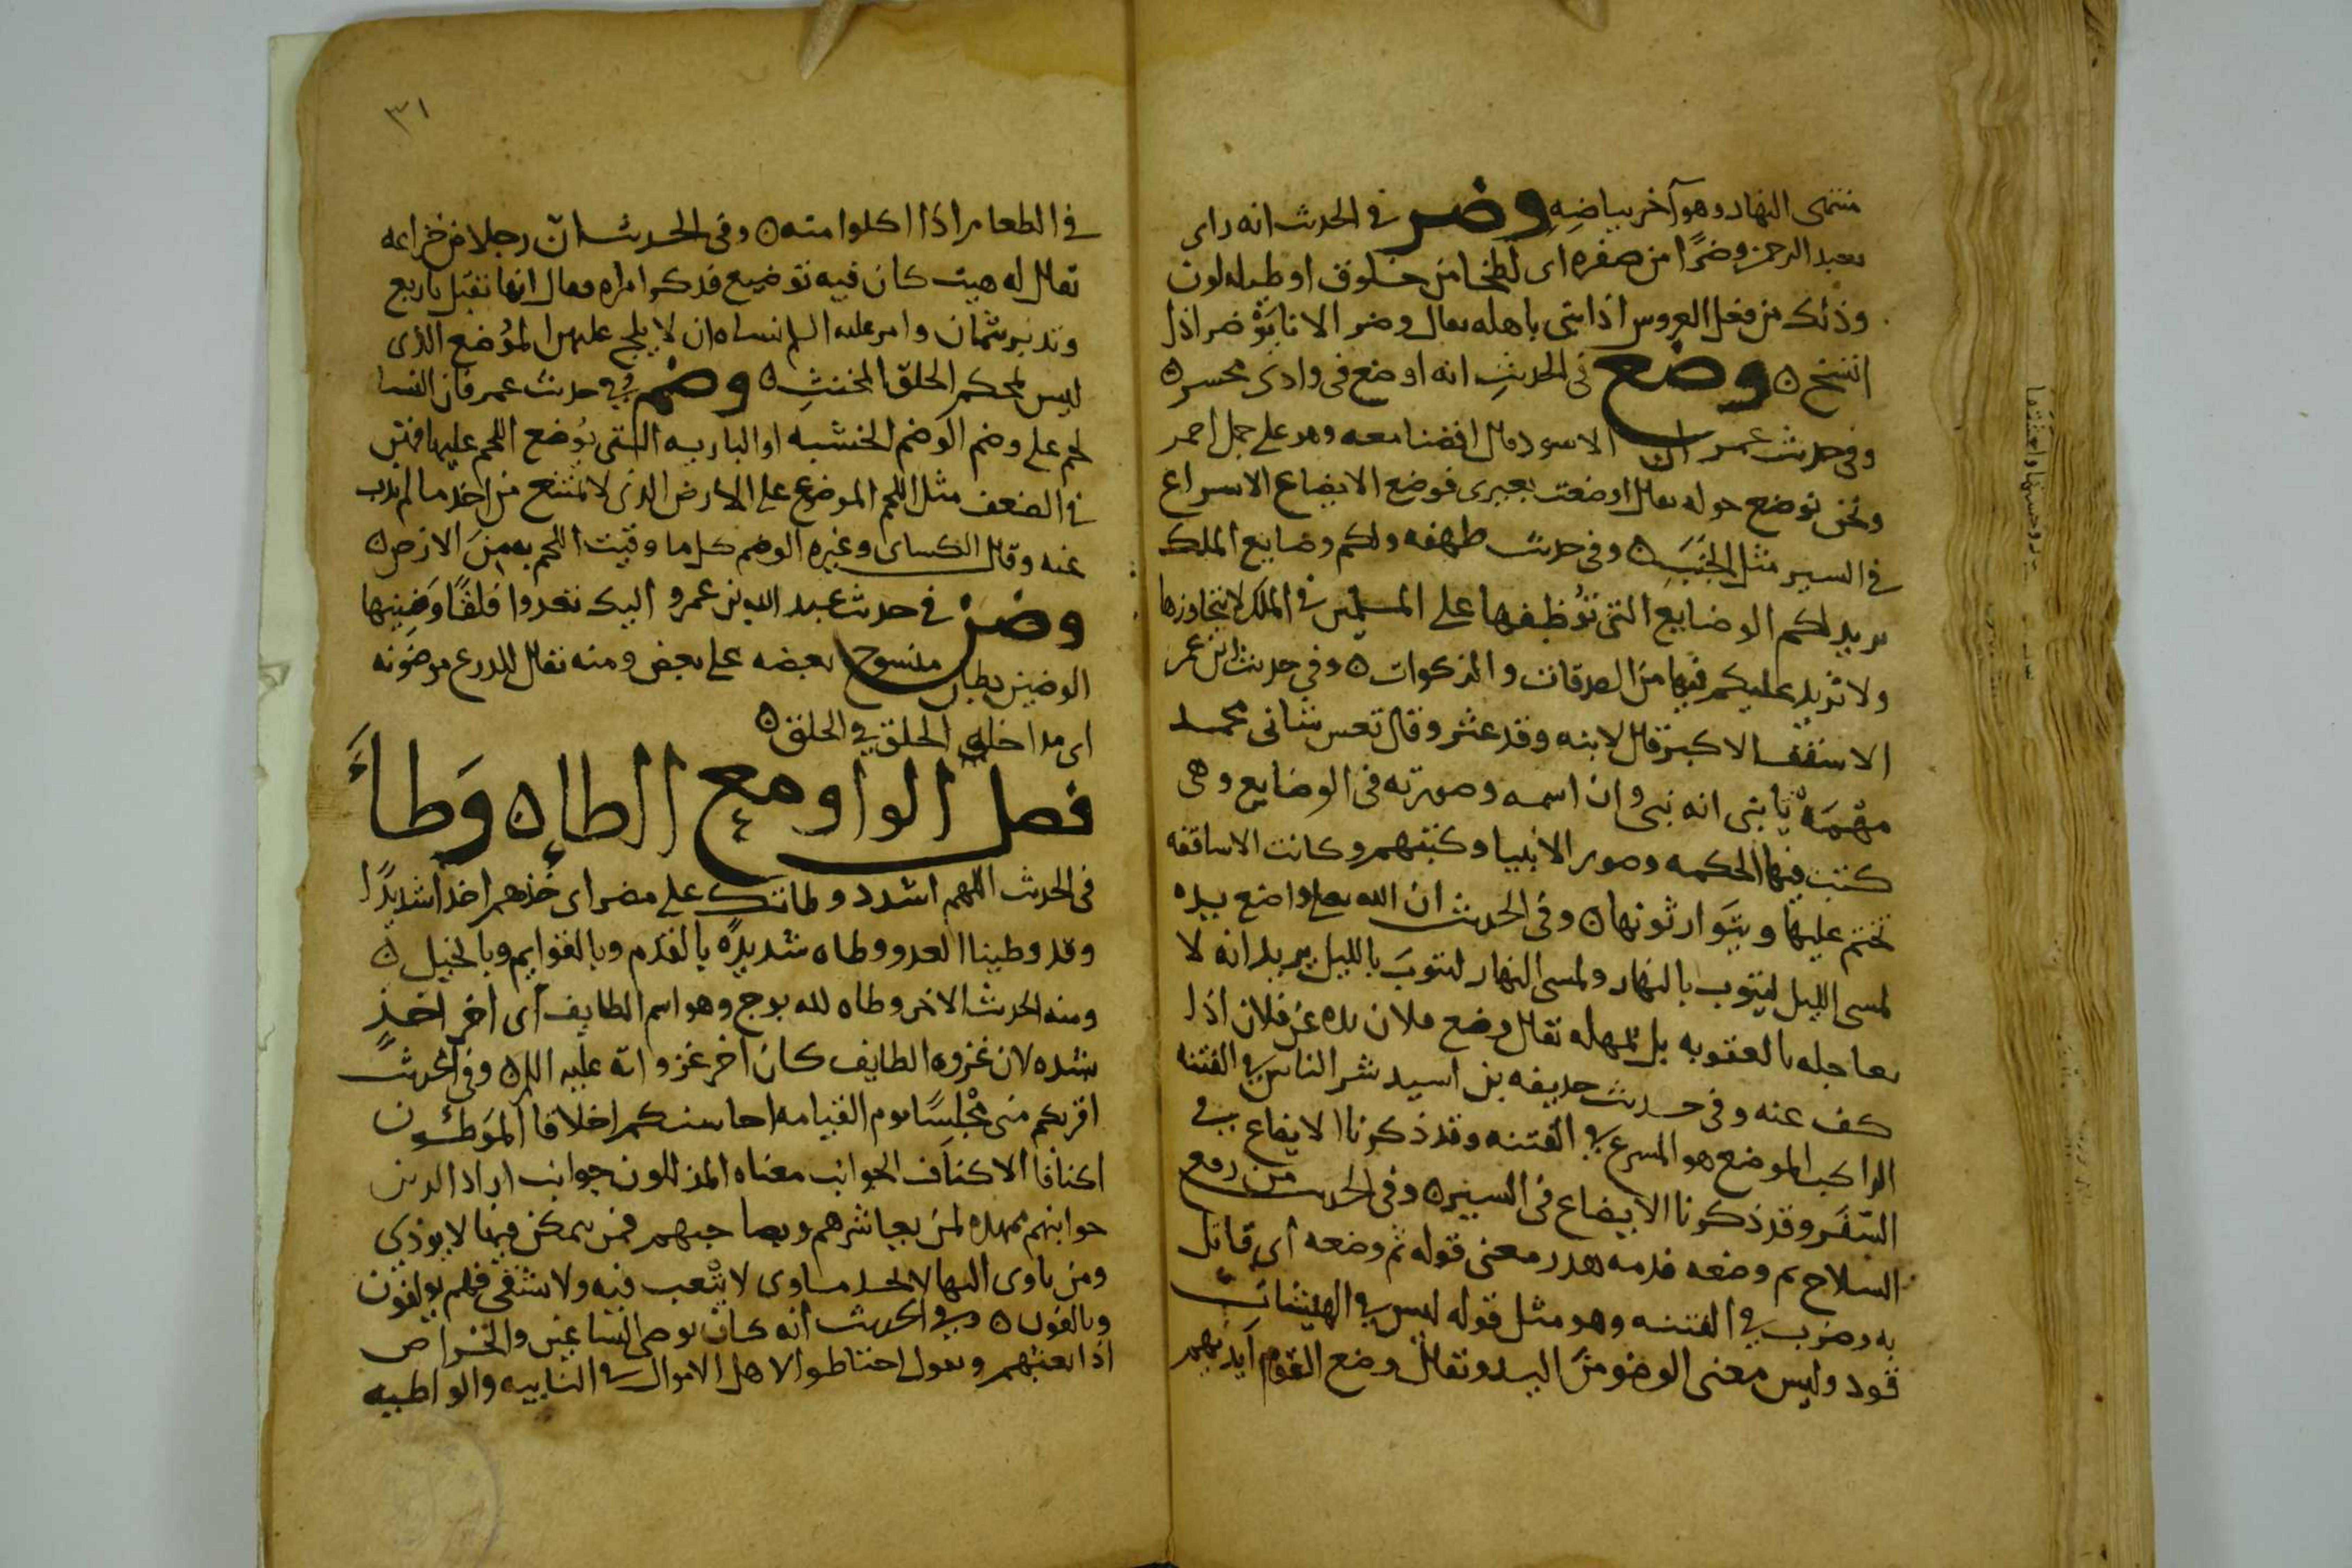 منتهى النهار وهو آخر بياضه وضر في الحدث انه راى
بعبد الرحمن وضرًا من صفره اى لطخا من خلوق او طيب له لون
وذلك من فعل العروس اذا بنى باهله يقال وضر الانا يوْضر اذا
اتسخ ه وضع فى الحديثِ انه اوضع فى وادى محسر ه
وفى حديث عمر ان الاسود قال افضنا معه وهو على جمل احمر
ونحن نوضع حوله يقال اوضعت بعيرى فوضع الايضاع الاسراع
في السير مثل الخَبَبِ ه وفى حديث طهفه ولكم وضايع الملك
يريد لكم الوضايع التى نُوَظِفها على المسلمين في الملك لا نتجاوزها
ولا نزيد عليكم فيها من الصدقات والزكوات ه وفي حديث ابن عمر
الاسقف الاكبر قال لابنه وقد عثر وقال تعس شانى محمد
مَهْمَهْ يا بنى انه نبى وان اسمه وصورته فى الوضايع وهى
كتب فيها الحكمه وصور الانبيا وكتبهم وكانت الاساقفه
تختم عليها ويتوارثونها ه وفى الحديث ان الله تعالى واضع يده
لمسى الليل ليتوب بالنهار ولمسى النهار ليتوبَ بالليل يريد انه لا
يعاجله بالعقوبه بل يمهله يقال وضع فلان يده عن فلان اذا
كف عنه وفى حديث حذيفه بن اسيد شر الناس في الفتنه
الراكب الموضع هو المسرع في الفتنه وقد ذكرنا الايضاع في
السّفر وقد ذكرنا الايضاع فى السير ه وفى الحديث من رفع
السلاح ثم وضعه فدمه هدر معنى قوله ثم وضعه اى قاتل
به وضرب في الفتنه وهو مثل قوله ليس في الهيشات
قود وليس معنى الوضع من اليد ويقال وضع القوم ايديهم
٣١
في الطعام اذا اكلوا منه ه وفى الحديث انّ رجلا من خزاعه
يقال له هيت كان فيه توضيع فذكر امراه فقال انها تقبل باربع
وتدبر بثمان وامر عليه السلم نساه ان لا يلج عليهن الموُضع الذى
ليس بمحكم الخلق المخنثِ ه وضم في حديث عمر فان النسا
لحم على وضم الوضم الخشبه او الباريه التى يُوضع اللحم عليها فهن
في الضعف مثل اللحم الموضوع على الارض الذى لا يمتنع من اخد ما لم يذب
عنه وقال الكسائ وغيره الوضم كل ما وقيت اللحم به من الارض ه
وضن في حديث عبد الله بن عمرو اليك تعدوا قلقًا وَضِينها
الوضين بطان منسوج بعضه على بعض ومنه يقال للدرع موضونه
اى مداخله الحلق في الحلق ه
فصل الواو مع الطاء ه وَطاَءَ
فى الحدث اللهم اشدد وطاتك على مضر اى خذهم اخذا شديدًا
وقد وطينا العدو وطاه شديدةً بالقدم وبالقوايم وبالخيل ه
ومنه الحديث الاخر وطاه لله بوج وهو اسم الطايف اى اخر اخذٍ
شده لان غزوه الطايف كان اخر غزواته عليه السلم ه وفى الحديث
اقربكم منى مجْلِسًا يوم القيامه احاسنكم اخلاقا الموَطئون
اكنافا الاكناف الجوانب معناه المذللون جوانب اراد الدين
جوانبهم ممهده لمن يعاشرهم ويصاحبهم فمن يمكن فيها لا يوذي
ومن ياوى اليها لا يجد ماوى لا يتْعب فيه ولا يشقى فهم يولفون
ويالفون ه وفي الحديث انه كان يوصى الساعين والخراص
اذا بعثهم ويقول احتاطوا لاهل الاموال في النابيه والواطيه